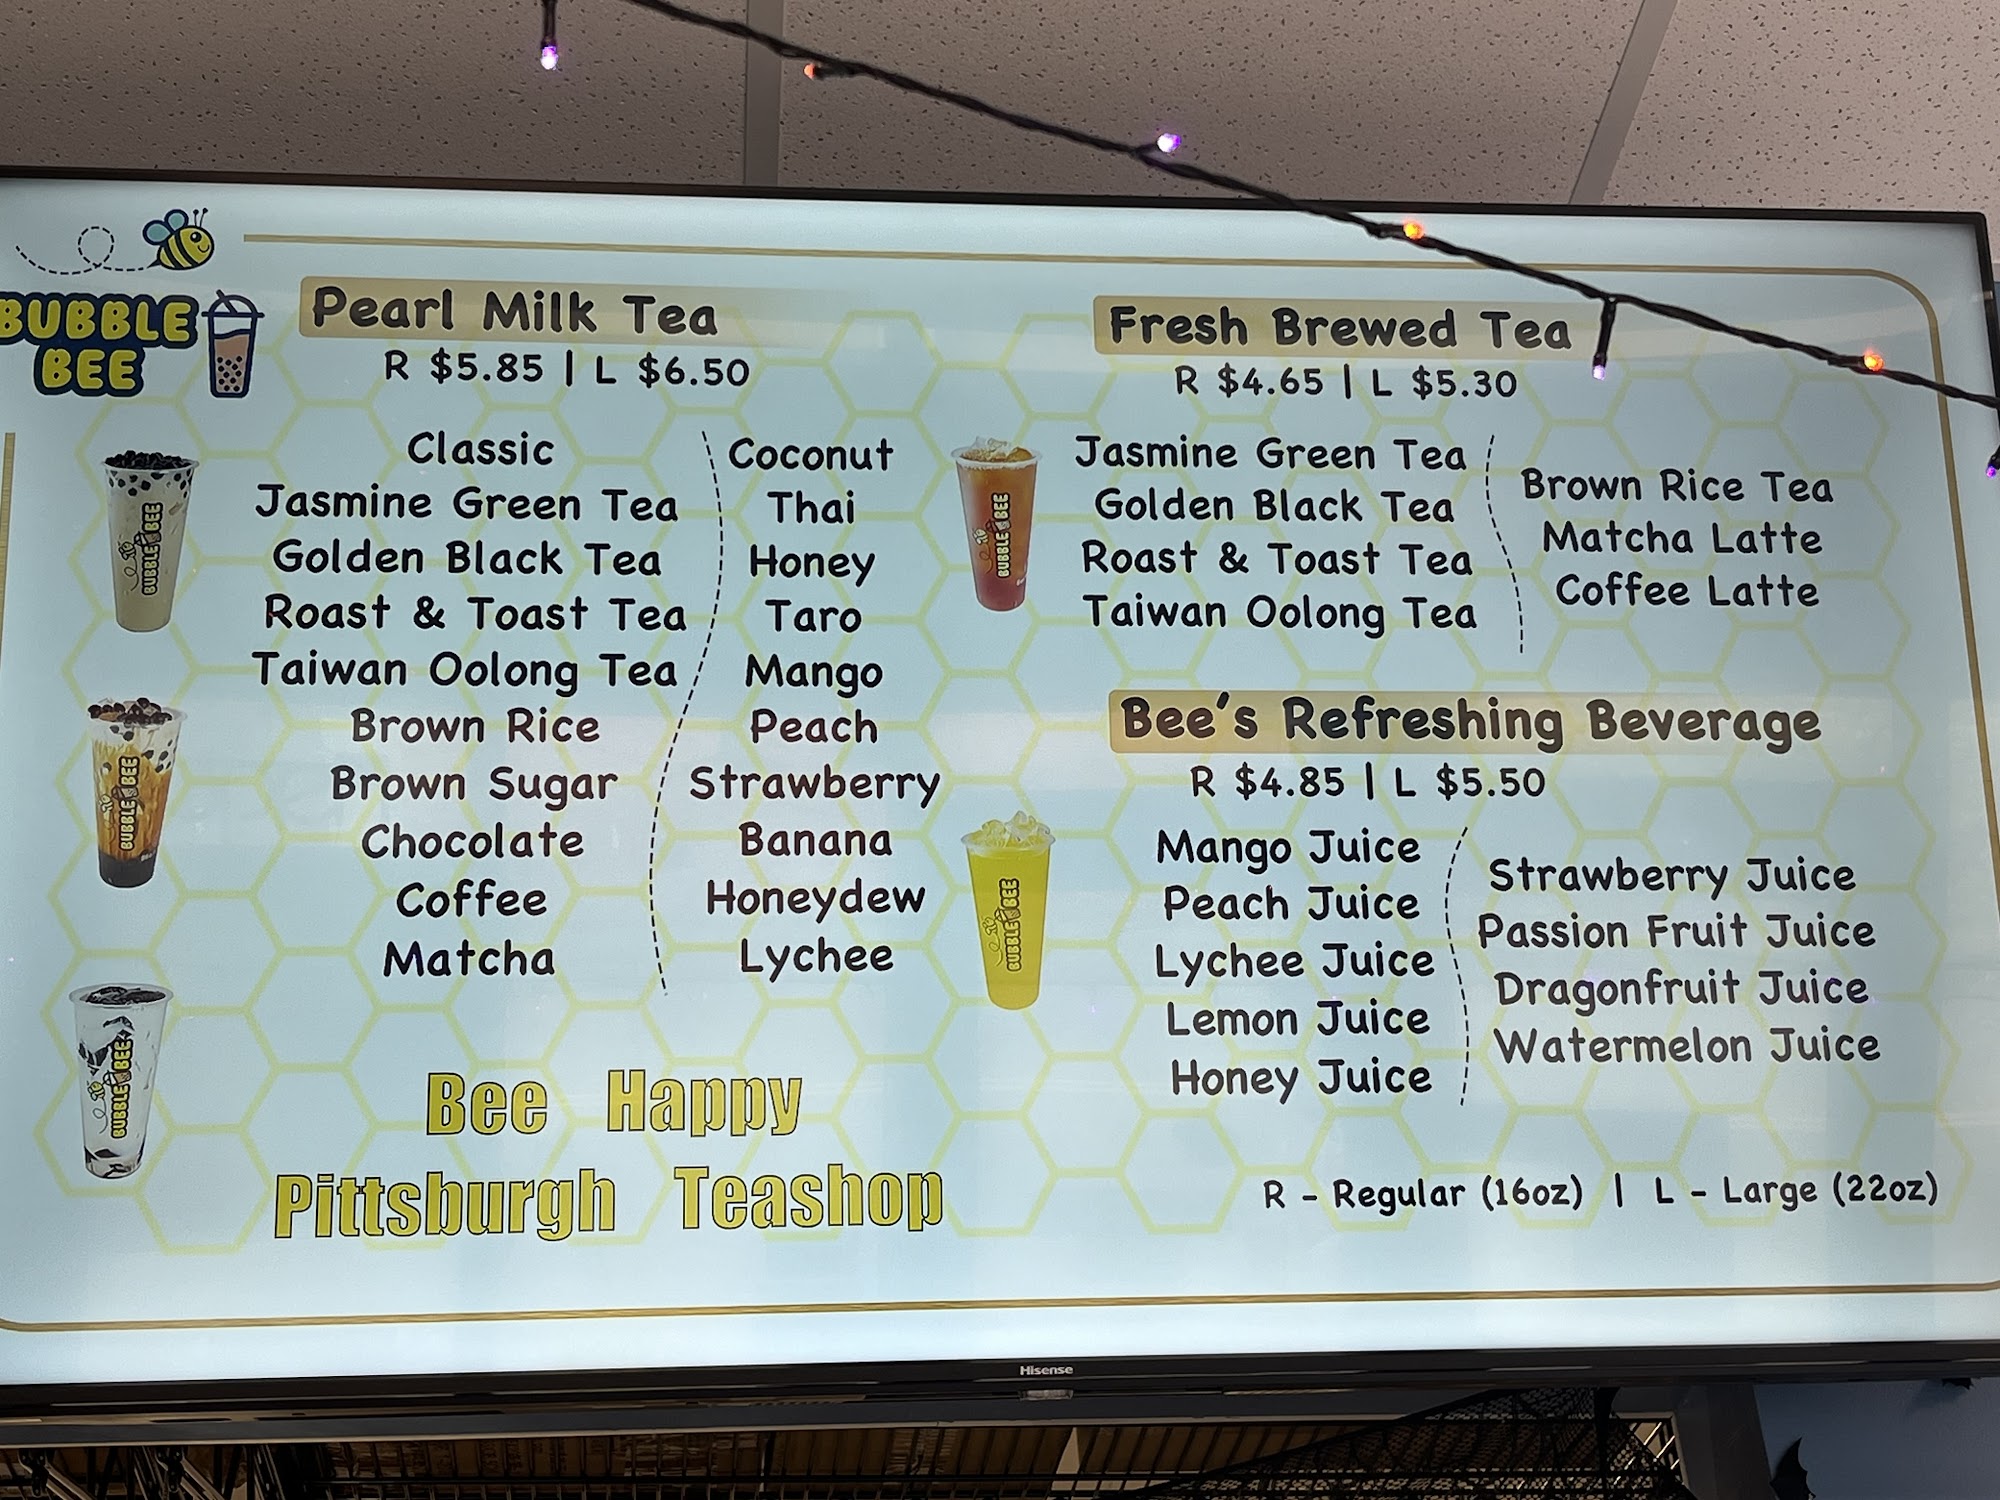 BUBBLE
BEE
Pearl Milk Tea
R $5.85 | L $6.50
Classic
Jasmine Green Tea
Golden Black Tea
Roast & Toast Tea
Taiwan Oolong Tea
Brown Rice
Brown Sugar
Chocolate
Coffee
Matcha
Coconut
Thai
Honey
Taro
Mango
Peach
Strawberry
Banana
Honeydew
Lychee
BUBBLE BEE
BUBBLE BEE
BUBBLE BEE
Bee Happy
Pittsburgh Teashop
Fresh Brewed Tea
R $4.65 | L $5.30
BUBBLE BEE
Jasmine Green Tea
Golden Black Tea
Roast & Toast Tea
Taiwan Oolong Tea
Brown Rice Tea
Matcha Latte
Coffee Latte
Bee's Refreshing Beverage
R $4.85 | L $5.50
BUBBLE BEE
Mango Juice
Peach Juice
Lychee Juice
Lemon Juice
Honey Juice
Strawberry Juice
Passion Fruit Juice
Dragonfruit Juice
Watermelon Juice
R - Regular (16oz) | L - Large (22oz)
Hisense